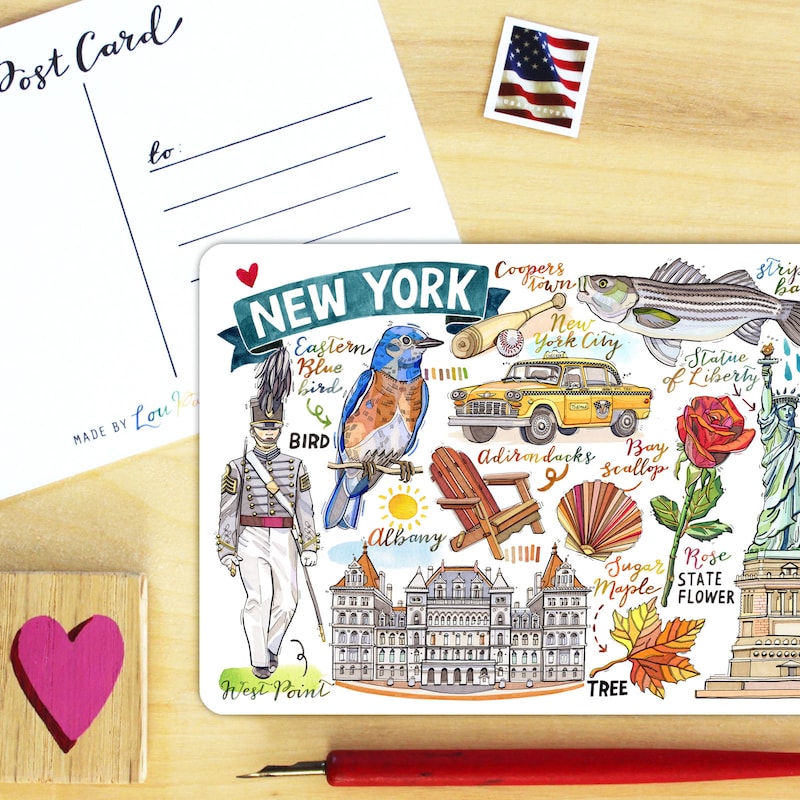 Post Card
to:
MADE BY Lou
NEW YORK
Coopers
town
New
York City
Eastern
Blue
bird
BIRD
Statue
of Liberty
Adirondacks
Bay
Scallop
Albany
Sugar
Maple
Rose
STATE
FLOWER
TREE
West Point